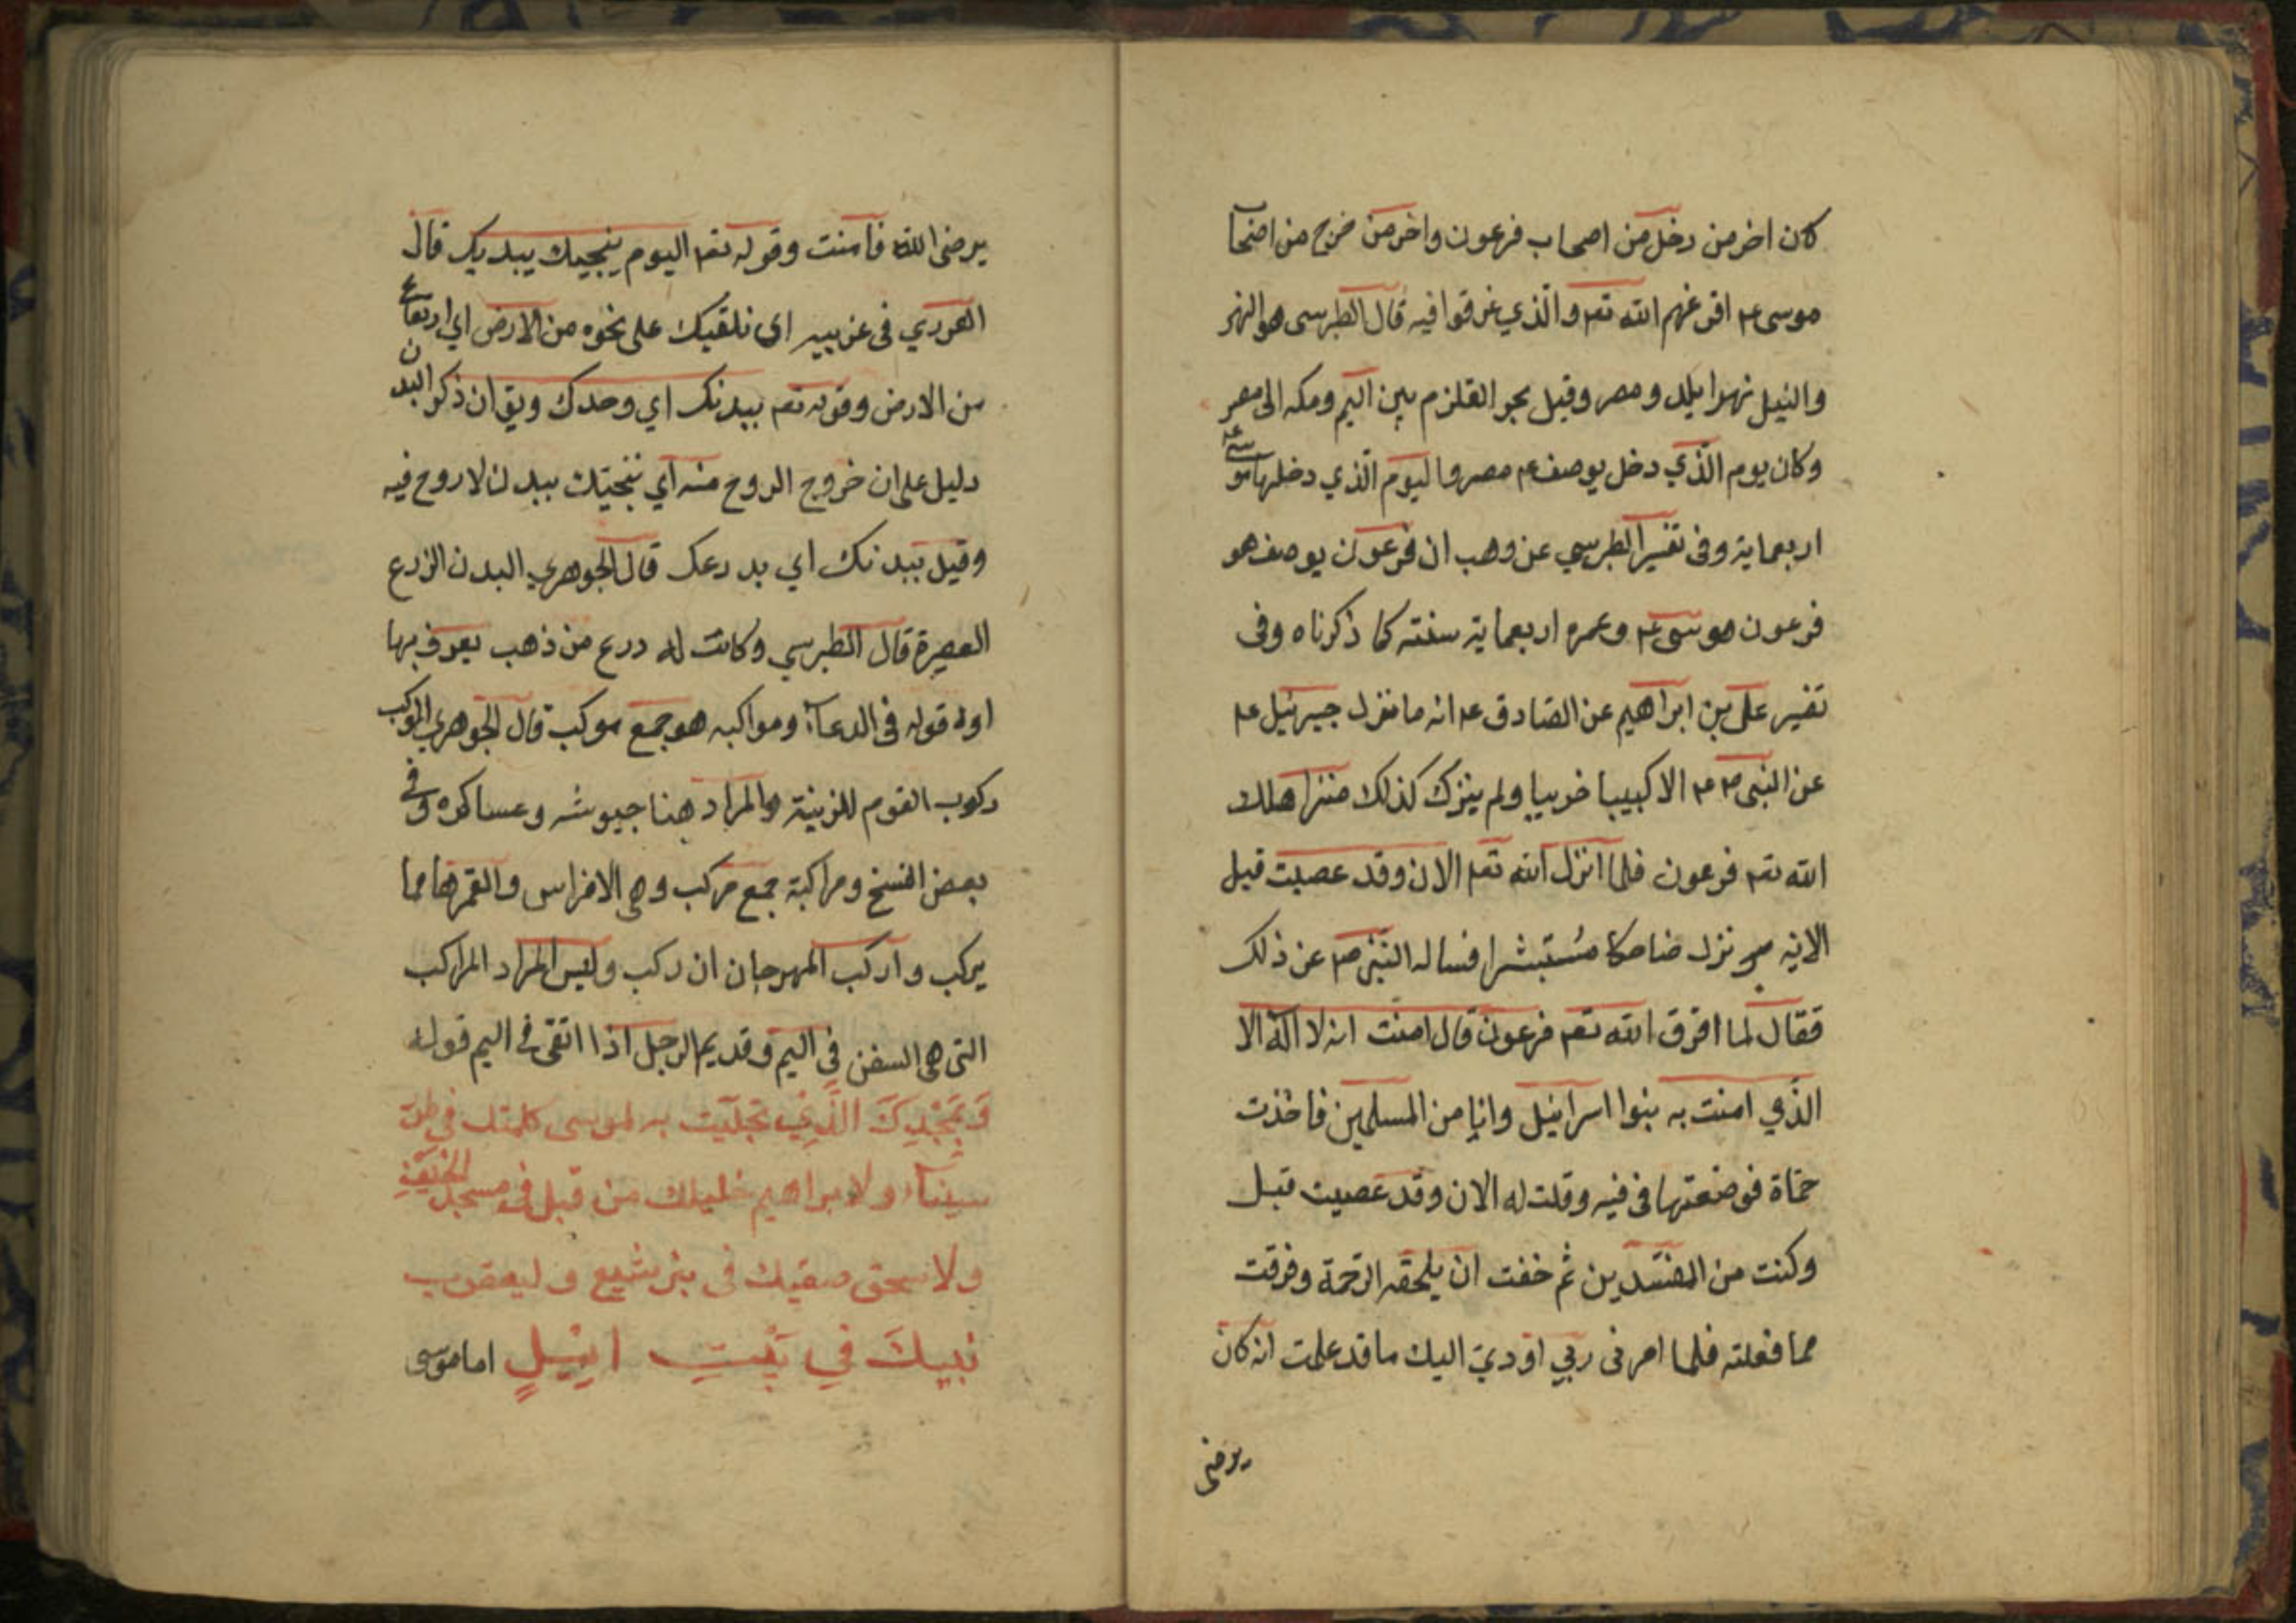 كان اخر من دخل من اصحاب فرعون واخر من خرج من اصحا
موسى ع‍م اقرعهم الله تعم والّذي غرقوا فيه قال الطبرسى هو النهر
والنيل نهر ايلد ومصر وقيل بحر القلزم بين اليم ومكه الى مصر
وكان يوم الّذي دخل يوصف ع‍م مصر واليوم الّذي دخلها موسى ع‍م
اربعماية وفى تفسير الطبرسي عن وهب ان فرعون يوصف هو
فرعون موسى ع‍م وعمره اربعماية سنته كما ذكرناه وفى
تفسير على بن ابراهيم عن الصادق ع‍م انه ما نزل جبرئيل ع‍م
عن النبى ص‍م الا كبيبا خريبا ولم ينزك كذلك منذ اهلك
الله تعم فرعون فلما انزل الله تعم الان وقد عصيت قبل
الايه نزل ضاحكا مُستبشرا فساله النّبى ص‍م عن ذلك
فقال لما اغرق الله تعم فرعون قال امنت انه لا اله الا
الذّي امنت به بنوا اسرائيل وانا من المسلمين فاخذت
حماة فوضعتها فى فيه وقلت له الان وقد عصيت قبل
وكنت من المفسّدين ثم خفت ان يلحقه الرّحمة وفرقت
مما فعلته فلما امرنى ربّي اودي اليك ما قد علمت انه كان
يرضى
يرضى الله فآمنت وقوله تعم اليوم ينجيك ببديك قال
الهروي فى غريبيه اى نلقيك على نخوه من الارض اي ارتفاع
من الارض وقوله تعم ببدنك اي وحدك ويق ان ذكر البدن
دليل على ان خروج الروح منه اي ننجيّك ببدن لا روح فيه
وقيل ببدنك اي بدرعك قال الجوهري البدن الزرع
العصيرة قال الطبرسي وكانت له درع من ذهب يعرف بها
اوله قوله فى الدعاء ومواكبه هو جمع موكب قال الجوهري الموكب
ركوب القوم للزينة والمراد هنا جيوشه وعساكره وفى
بعض النسخ ومراكبة جمع مركب وهى الافراس والقمرها مما
يركب واركب المهرجان ان ركب وليس المراد المراكب
التى هى السفن فى اليم وقد يم الرجل اذا اتقى فى اليم قوله
وَبِمَجْدِكَ الَّذِي تجلّيت به لموسى كلمتك فى طور
سيناء ولابراهيم خليلك من قبل فى مسجد الخيف
ولاسحق صفيك فى بئر شيع وليعقوب
نبيكَ في بَيْتِ ايْيلٍ اما موسى